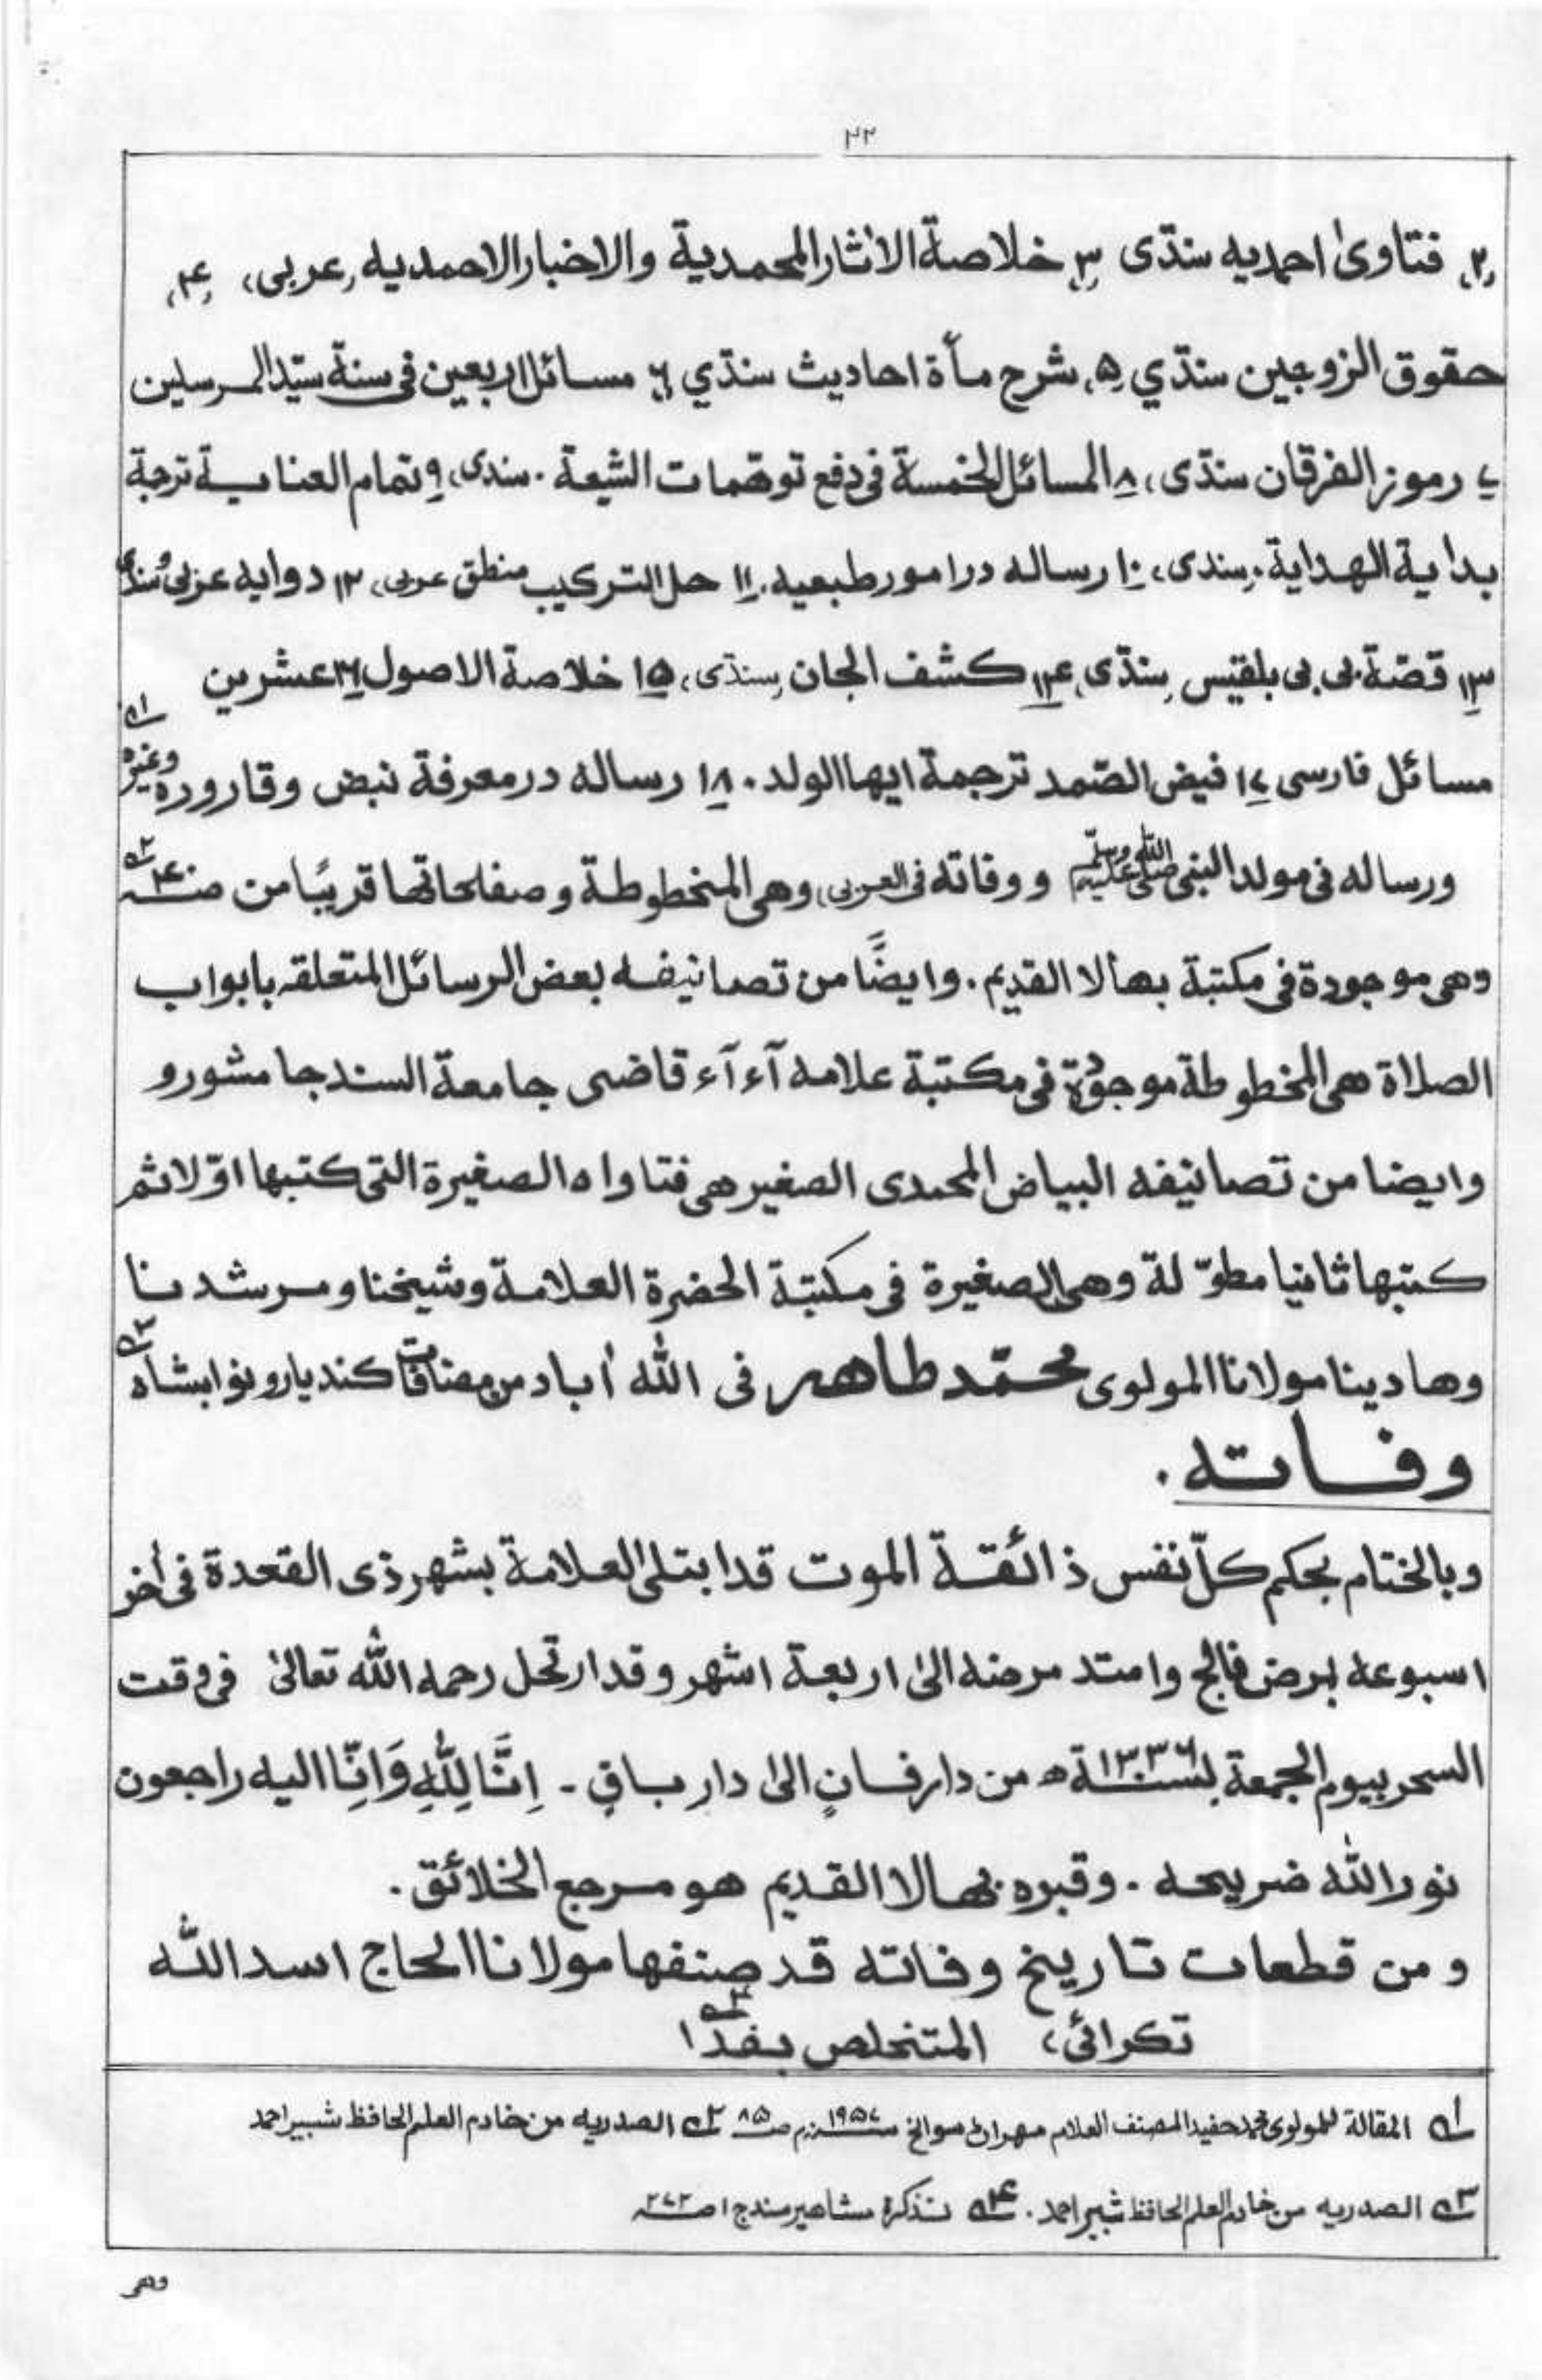 ۲۲
(۲) فتاویٰ احمدیه سنڌی (۳) خلاصة الاٰثار المحمدیة والاخبار الاحمدیه (عربی) (۴)
حقوق الزوجین سنڌي (۵) شرح مأة احادیث سنڌي (۶) مسائل اربعین فی سنة سیّد المرسلین
(۷) رموز الفرقان سنڌی (۸) المسائل الخمسة فی دفع توهّمات الشیعة . سندی، (۹) تمام العنایة ترجمة
بدایة الهدایة (سندی) (۱۰) رساله در امور طبعیه. (۱۱) حل الترکیب منطق عربی (۱۲) دوایه عربی وسنڌی
(۱۳) قصّة بی بی بلقیس (سنڌی) (۱۴) کشف الجان (سنڌی) (۱۵) خلاصة الاصول (۱۶) عشرین
مسائل فارسی (۱۷) فیض الصّمد ترجمة ایها الولد . (۱۸) رساله در معرفة نبض و قاروره وغیره ۱؎
ورساله فی مولد النبی صلی اللہ علیہ وسلم و وفاته فی العربی، وهی المخطوطة و صفلحاتها قریبًا من صـ۴۰ ۲؎
وهی موجودة فی مکتبة بهالا القدیم . وایضًا من تصانیفه بعض الرسائل المتعلقه بابواب
الصلاة هی المخطوطة موجودة فی مکتبة علامه آء آء قاضی جامعة السند جامشورو
وایضا من تصانیفه البیاض المحمدی الصغیر هی فتاواه الصغیرة التی کتبها اوّلا ثم
کتبها ثانیا مطوّلة وهی الصغیرة فی مکتبة الحضرة العلامة وشیخنا ومرشدنا
وهادینا مولانا المولوی محمّد طاهر فی اللّٰه اٰباد من مضافات کندیارو نوابشاه ۳؎
وفاته .
وبالختام بحکم کلّ نفس ذائقة الموت قد ابتلیٰ العلامة بشهر ذی القعدة فی اٰخر
اسبوعه لمرض فالج وامتد مرضه الیٰ اربعة اشهر وقد ارتحل رحمه اللّٰه تعالیٰ فی وقت
السحر بیوم الجمعة لسنة ۱۳۳۶ھ من دار فانٍ الیٰ دار باقٍ ـ اِنَّا لِلّٰهِ وَاِنَّا الیه راجعون
نور اللّٰه ضریحه . وقبره بهالا القدیم هو مرجع الخلائق .
و من قطعات تاریخ وفاته قد صنفها مولانا الحاج اسد اللّٰه
تکرائی، المتخلص بفدا ۴؎
۱؎ المقالة للمولوی محمد حفید المصنف العلام مهراݨ سوانح سنه ۱۹۵۷م صـ۸۵ ۲؎ الصدریه من خادم العلم الحافظ شبیر احمد
۳؎ الصدریه من خادم العلم الحافظ شبیر احمد . ۴؎ تذکرة مشاهیر سند ج۱ صـ۲۷۲
وهی